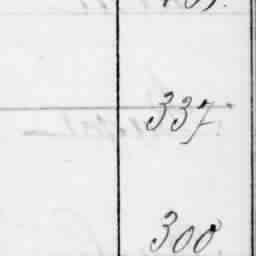 337.
300.